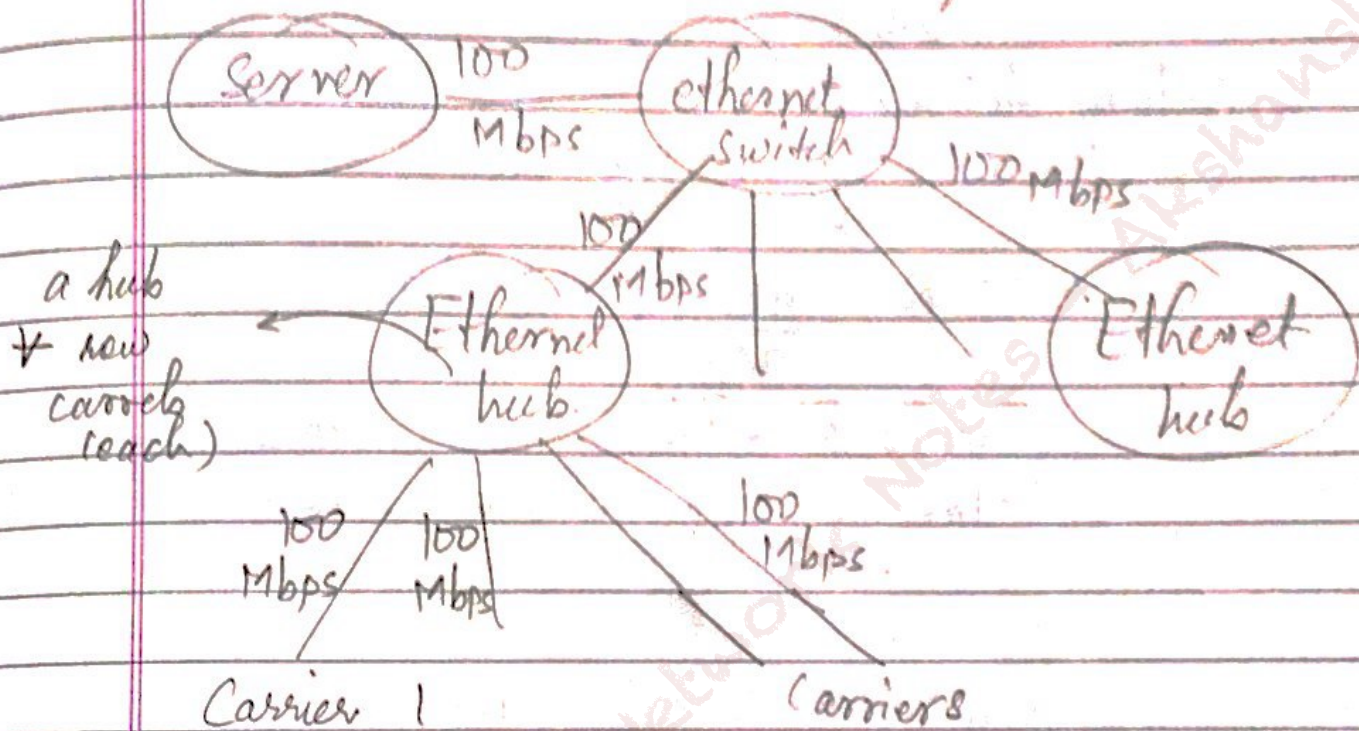 Server
100
Mbps
ethernet
switch
100 Mbps
100
Mbps
a hub
∀ row
carrels
(each)
Ethernet
hub
Ethernet
hub
100
Mbps
100
Mbps
100
Mbps
Carrier 1
Carriers
Network Notes Akshansh